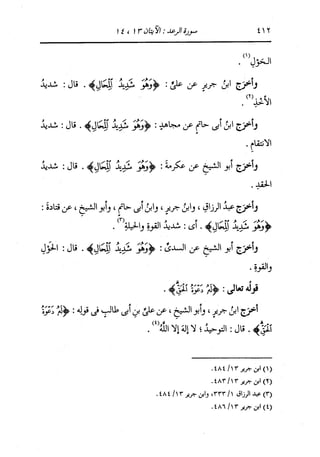 ٤١٢ سورة الرعد : الآيتان ١٣ ، ١٤
الحَوْلِ(١).
وأخرَج ابنُ جريرٍ عن عليٍّ : ﴿وَهُوَ شَدِيدُ اَلْمِحَالِ﴾ . قال : شديدُ
الأخذِ(٢).
وأخرَج ابنُ أبى حاتمٍ عن مجاهدٍ : ﴿وَهُوَ شَدِيدُ اَلْمِحَالِ﴾ . قال : شديدُ
الانتقامِ .
وأخرَج أبو الشيخِ عن عكرمةَ : ﴿وَهُوَ شَدِيدُ اَلْمِحَالِ﴾ . قال : شديدُ
الحقدِ .
وأخرَج عبدُ الرزاقِ ، وابنُ جريرٍ ، وابنُ أبى حاتمٍ ، وأبو الشيخِ ، عن قتادةَ :
﴿وَهُوَ شَدِيدُ اَلْمِحَالِ﴾ . أى : شديدُ القوةِ والحيلةِ(٣).
وأخرَج أبو الشيخِ عن السدىِّ : ﴿وَهُوَ شَدِيدُ اَلْمِحَالِ﴾ . قال : الحَوْلِ
والقوةِ .
قولُه تعالى : ﴿لَهُ دَعْوَةُ اَلْحَقِّ﴾ .
أخرَج ابنُ جريرٍ ، وأبو الشيخِ ، عن علىِّ بنِ أبى طالبٍ فى قولِه : ﴿لَهُ دَعْوَةُ
اَلْحَقِّ﴾ . قال : التوحيدُ ؛ لا إلهَ إلا اللهُ(٤).
(١) ابن جرير ١٣/ ٤٨٤.
(٢) ابن جرير ١٣/ ٤٨٣.
(٣) عبد الرزاق ١/ ٣٣٣، وابن جرير ١٣/ ٤٨٤.
(٤) ابن جرير ١٣/ ٤٨٦.